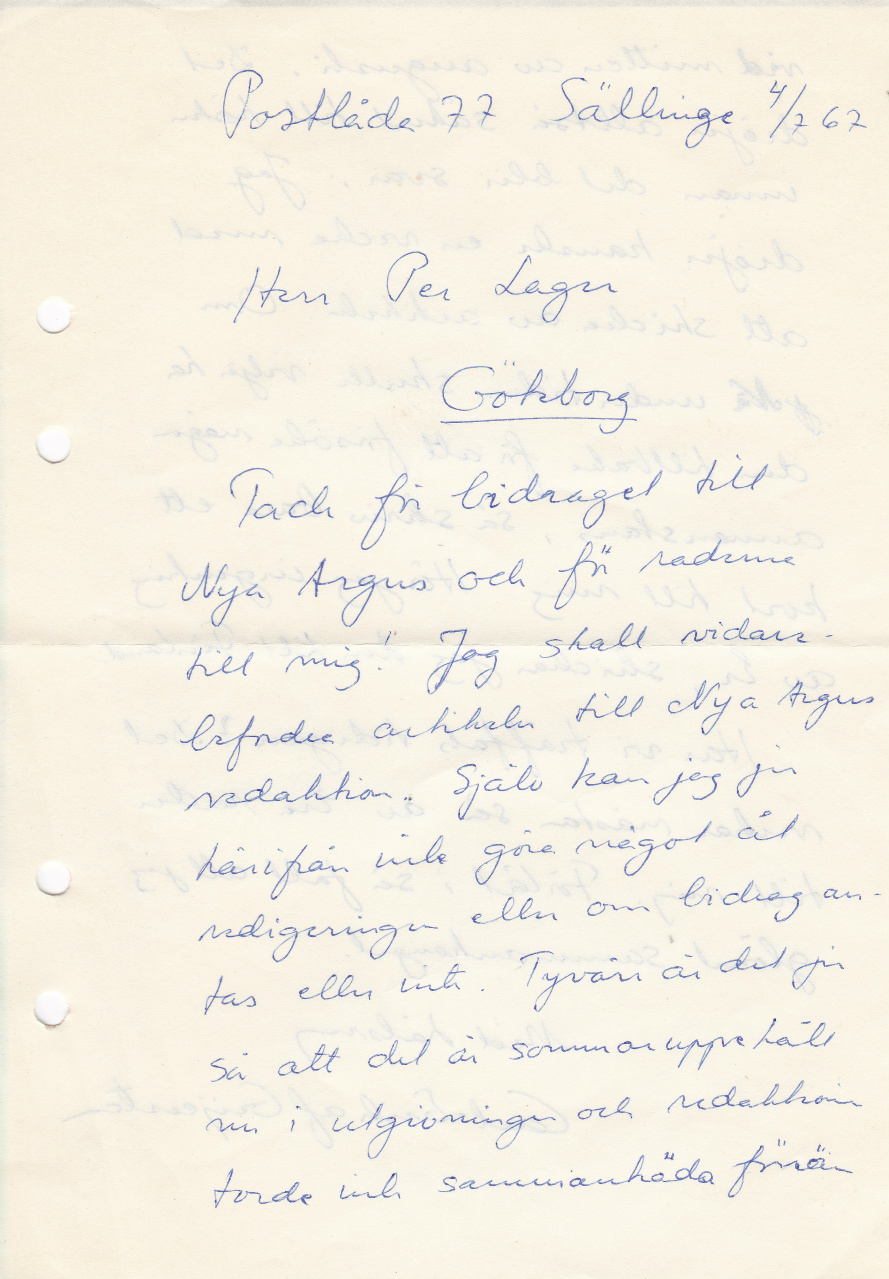 Postlåda 77 Sällinge 4/7 67
Herr Per Lager
Göteborg
Tack för bidraget till
Nya Argus och för raderna
till mig! Jag skall vidare-
befordra artikeln till Nya Argus
redaktion. Själv kan jag ju
härifrån inte göra något åt
redigeringen eller om bidrag an-
tas eller inte. Tyvärr är det ju
så att det är sommaruppehåll
nu i utgivningen och redaktionen
torde inte sammanträda förrän